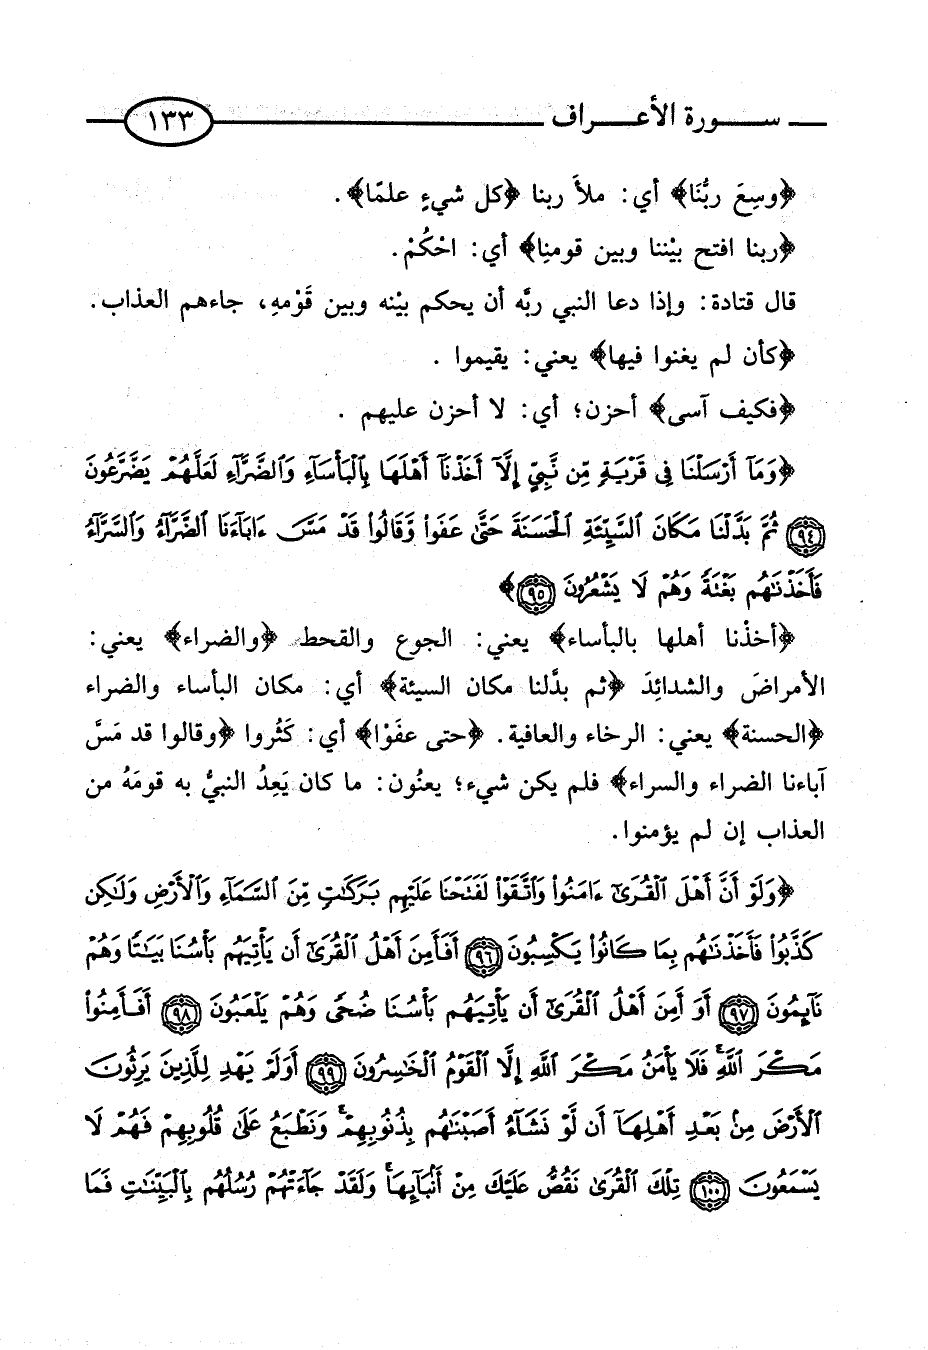 سورة الأعراف ١٣٣
﴿وسِعَ ربُّنَا﴾ أي: ملأَ ربنا ﴿كل شيءٍ علمًا﴾.
﴿ربنا افتح بيْننا وبين قومنِا﴾ أي: احْكُمْ.
قال قتادة: وإذا دعا النبي ربَّه أن يحكم بيْنه وبين قَوْمهِ، جاءهم العذاب.
﴿كأن لم يغنوا فيها﴾ يعني: يقيموا .
﴿فكيف آسى﴾ أحزن؛ أي: لا أحزن عليهم .
﴿وَمَآ أَرْسَلْنَا فِى قَرْيَةٍ مِّن نَّبِىٍّ إِلَّآ أَخَذْنَآ أَهْلَهَا بِٱلْبَأْسَآءِ وَٱلضَّرَّآءِ لَعَلَّهُمْ يَضَّرَّعُونَ
(٩٤) ثُمَّ بَدَّلْنَا مَكَانَ ٱلسَّيِّئَةِ ٱلْحَسَنَةَ حَتَّىٰ عَفَوا۟ وَّقَالُوا۟ قَدْ مَسَّ ءَابَآءَنَا ٱلضَّرَّآءُ وَٱلسَّرَّآءُ
فَأَخَذْنَٰهُم بَغْتَةً وَهُمْ لَا يَشْعُرُونَ (٩٥)﴾
﴿أخذْنا أهلها بالبأساء﴾ يعني: الجوع والقحط ﴿والضراء﴾ يعني:
الأمراضَ والشدائِدَ ﴿ثم بدَّلنا مكان السيئة﴾ أي: مكان البأساء والضراء
﴿الحسنة﴾ يعني: الرخاء والعافية. ﴿حتى عفَوْا﴾ أي: كَثُروا ﴿وقالوا قد مَسَّ
آباءنا الضراء والسراء﴾ فلم يكن شيء؛ يعنُون: ما كان يَعِدُ النبيُّ به قومَهُ من
العذاب إن لم يؤمنوا.
﴿وَلَوْ أَنَّ أَهْلَ ٱلْقُرَىٰٓ ءَامَنُوا۟ وَٱتَّقَوْا۟ لَفَتَحْنَا عَلَيْهِم بَرَكَٰتٍ مِّنَ ٱلسَّمَآءِ وَٱلْأَرْضِ وَلَٰكِن
كَذَّبُوا۟ فَأَخَذْنَٰهُم بِمَا كَانُوا۟ يَكْسِبُونَ (٩٦) أَفَأَمِنَ أَهْلُ ٱلْقُرَىٰٓ أَن يَأْتِيَهُم بَأْسُنَا بَيَٰتًا وَهُمْ
نَآئِمُونَ (٩٧) أَوَ أَمِنَ أَهْلُ ٱلْقُرَىٰٓ أَن يَأْتِيَهُم بَأْسُنَا ضُحًى وَهُمْ يَلْعَبُونَ (٩٨) أَفَأَمِنُوا۟
مَكْرَ ٱللَّهِ ۚ فَلَا يَأْمَنُ مَكْرَ ٱللَّهِ إِلَّا ٱلْقَوْمُ ٱلْخَٰسِرُونَ (٩٩) أَوَلَمْ يَهْدِ لِلَّذِينَ يَرِثُونَ
ٱلْأَرْضَ مِنۢ بَعْدِ أَهْلِهَآ أَن لَّوْ نَشَآءُ أَصَبْنَٰهُم بِذُنُوبِهِمْ ۚ وَنَطْبَعُ عَلَىٰ قُلُوبِهِمْ فَهُمْ لَا
يَسْمَعُونَ (١٠٠) تِلْكَ ٱلْقُرَىٰ نَقُصُّ عَلَيْكَ مِنْ أَنۢبَآئِهَا ۚ وَلَقَدْ جَآءَتْهُمْ رُسُلُهُم بِٱلْبَيِّنَٰتِ فَمَا